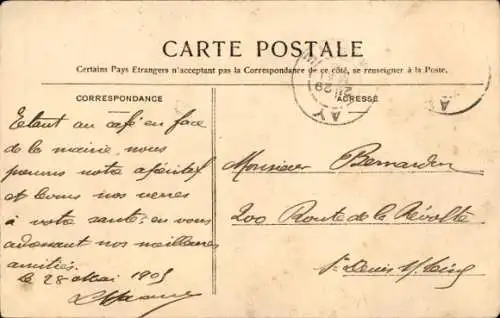 CARTE POSTALE
Certains Pays Etrangers n'acceptant pas la Correspondance de ce côté, se renseigner à la Poste.
CORRESPONDANCE
ADRESSE
Etant au café en face
de la mairie, nous
prenons notre apéritif
et levons nos verres
à votre santé, en vous
adressant nos meilleures
amitiés.
Le 28 Mai 1905
Monsieur Bernardin
200 Route de la Révolte
St Denis s/ Seine